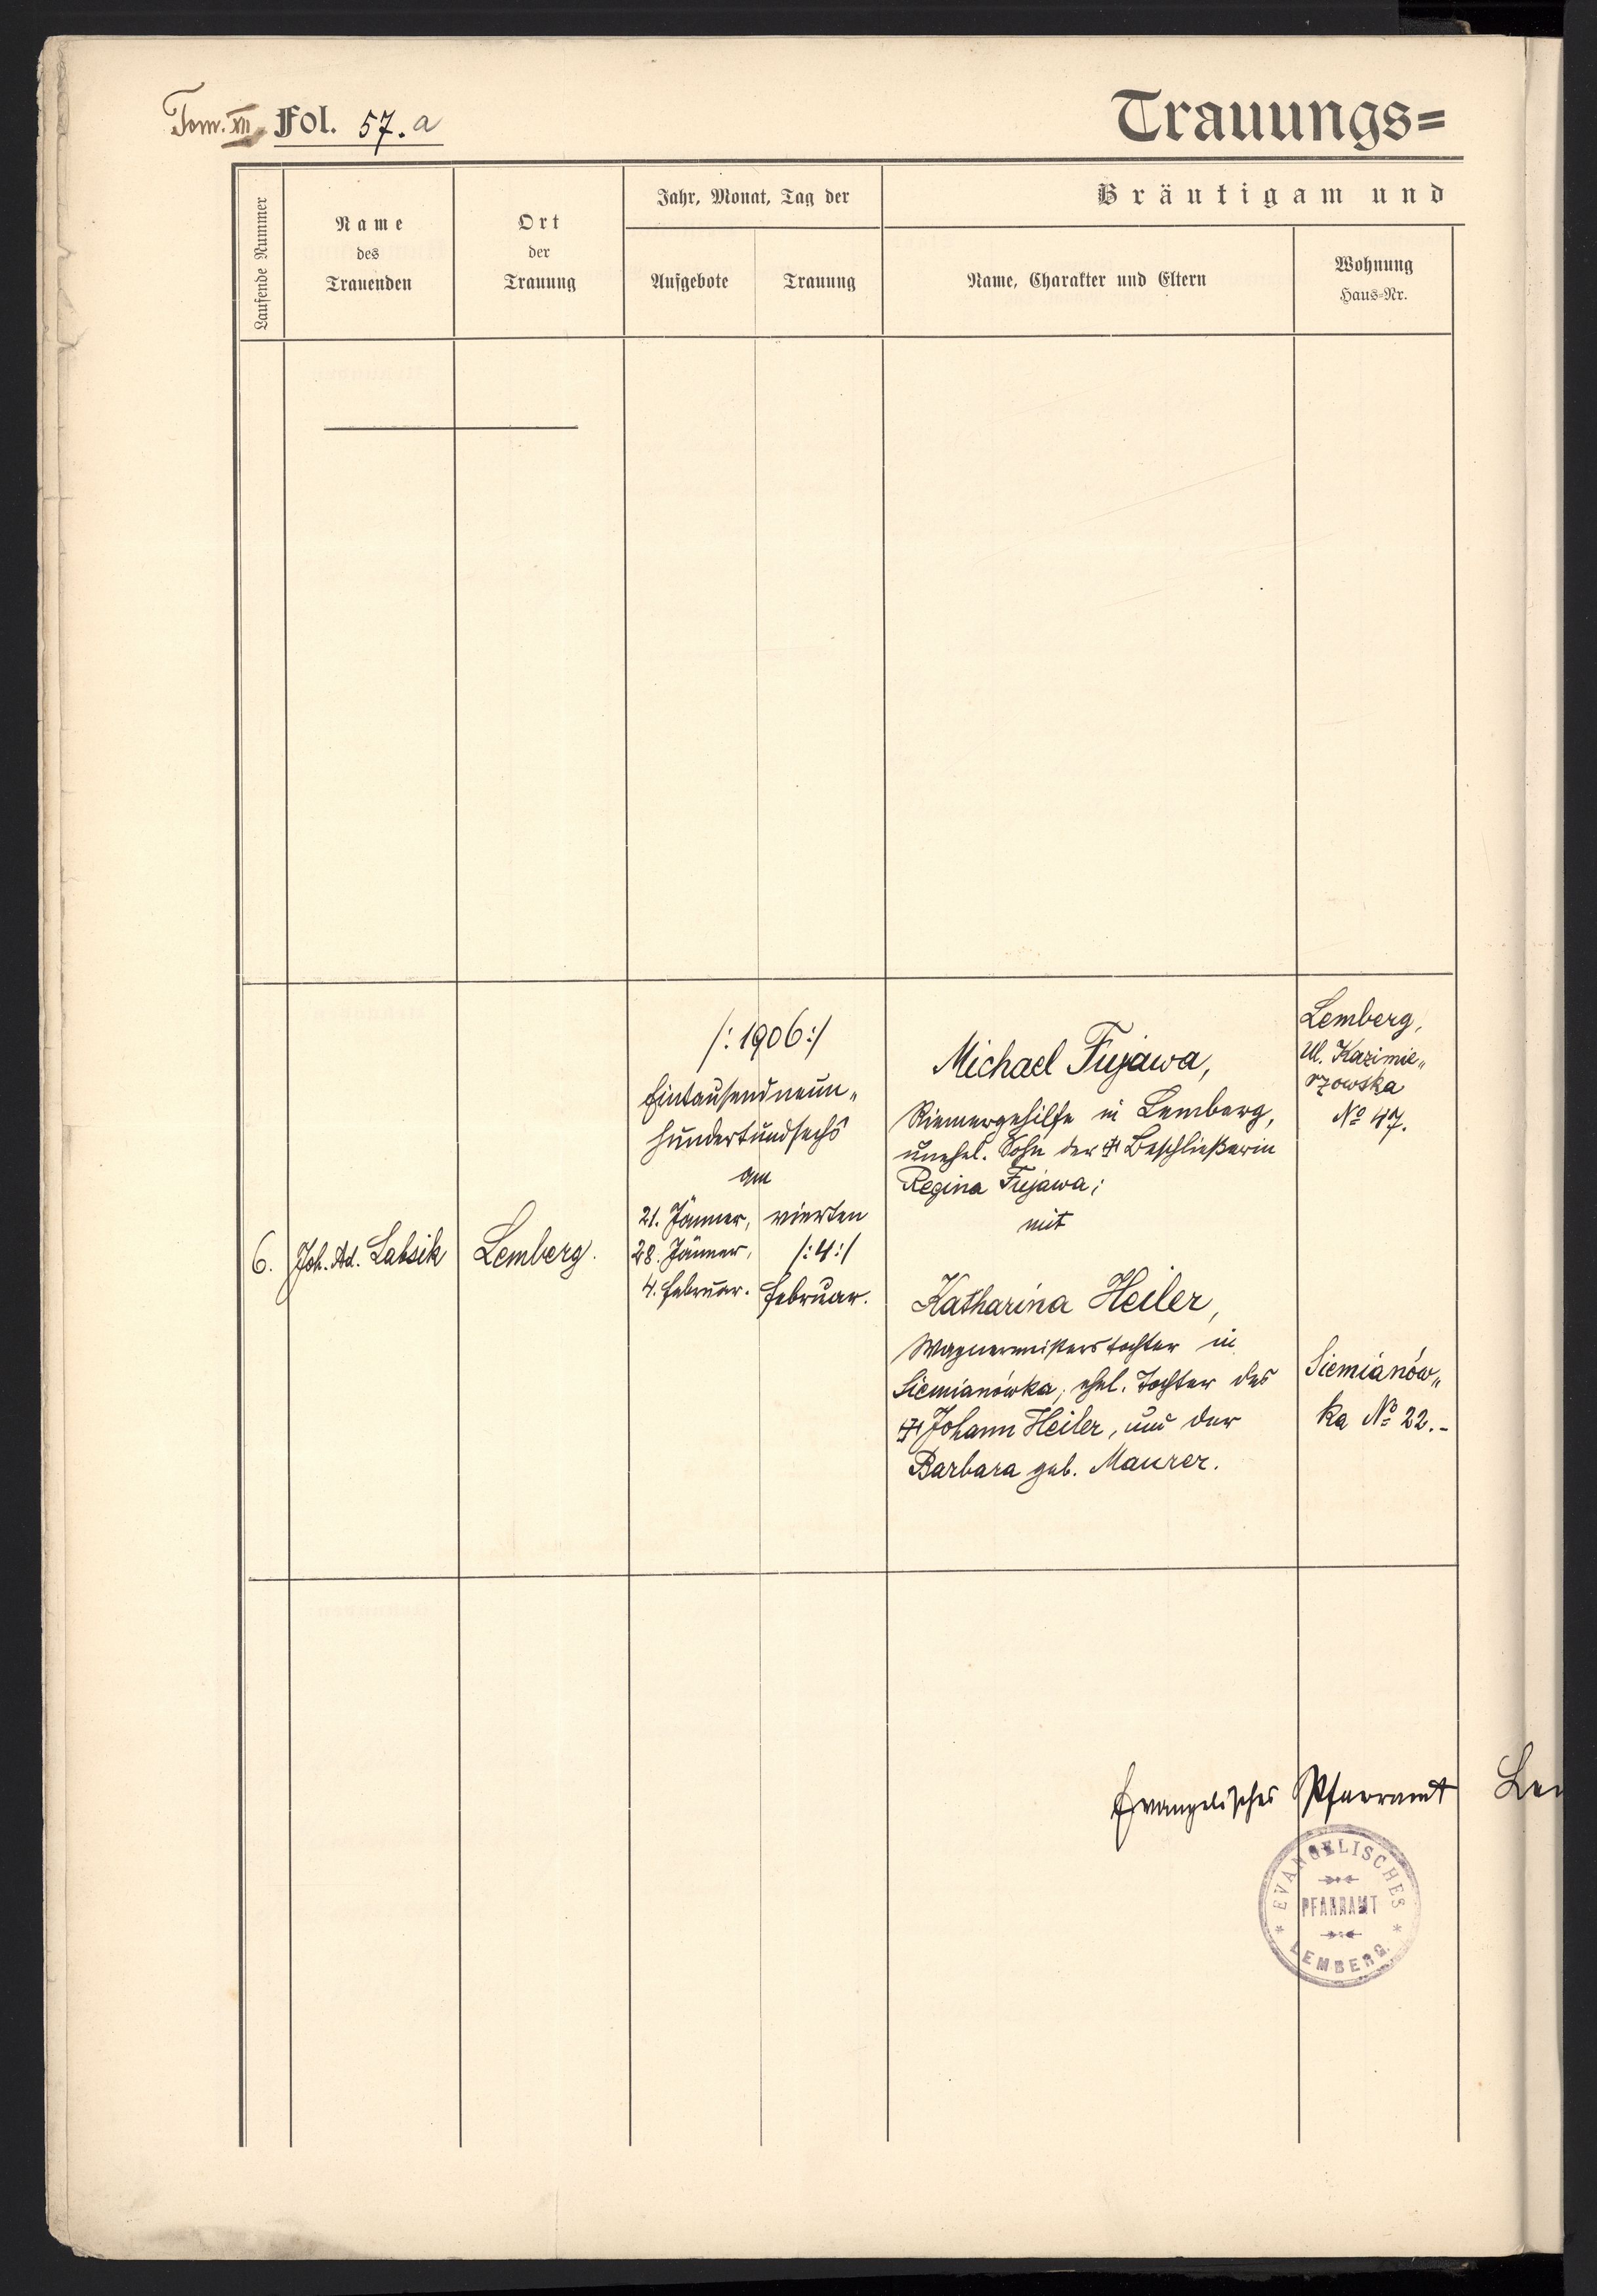 Tom. XII Fol. 57. a
Trauungs=
Laufende Nummer
Name
des
Trauenden
Ort
der
Trauung
Jahr, Monat, Tag der
Aufgebote
Trauung
Bräutigam und
Name, Charakter und Eltern
Wohnung
Haus=Nr.
6.
Joh. Ad. Labsik
Lemberg.
/: 1906 :/
Eintausendneun„
hundertundsechs
am
21. Jänner,
28. Jänner,
4. Februar.
vierten
/: 4 :/
Februar.
Michael Fujawa,
Riemergehilfe in Lemberg,
unehel. Sohn der † Beschließerin
Regina Fujawa;
mit
Katharina Heiler,
Wagnermeisterstochter in
Siemianówka, ehel. Tochter des
† Johann Heiler, und der
Barbara geb. Maurer.
Lemberg,
Ul. Kazimie„
rzowska
No 47.
Siemianów„
ka No 22.-
Evangelisches Pfarramt Lem
EVANGELISCHES
PFARRAMT
LEMBERG.